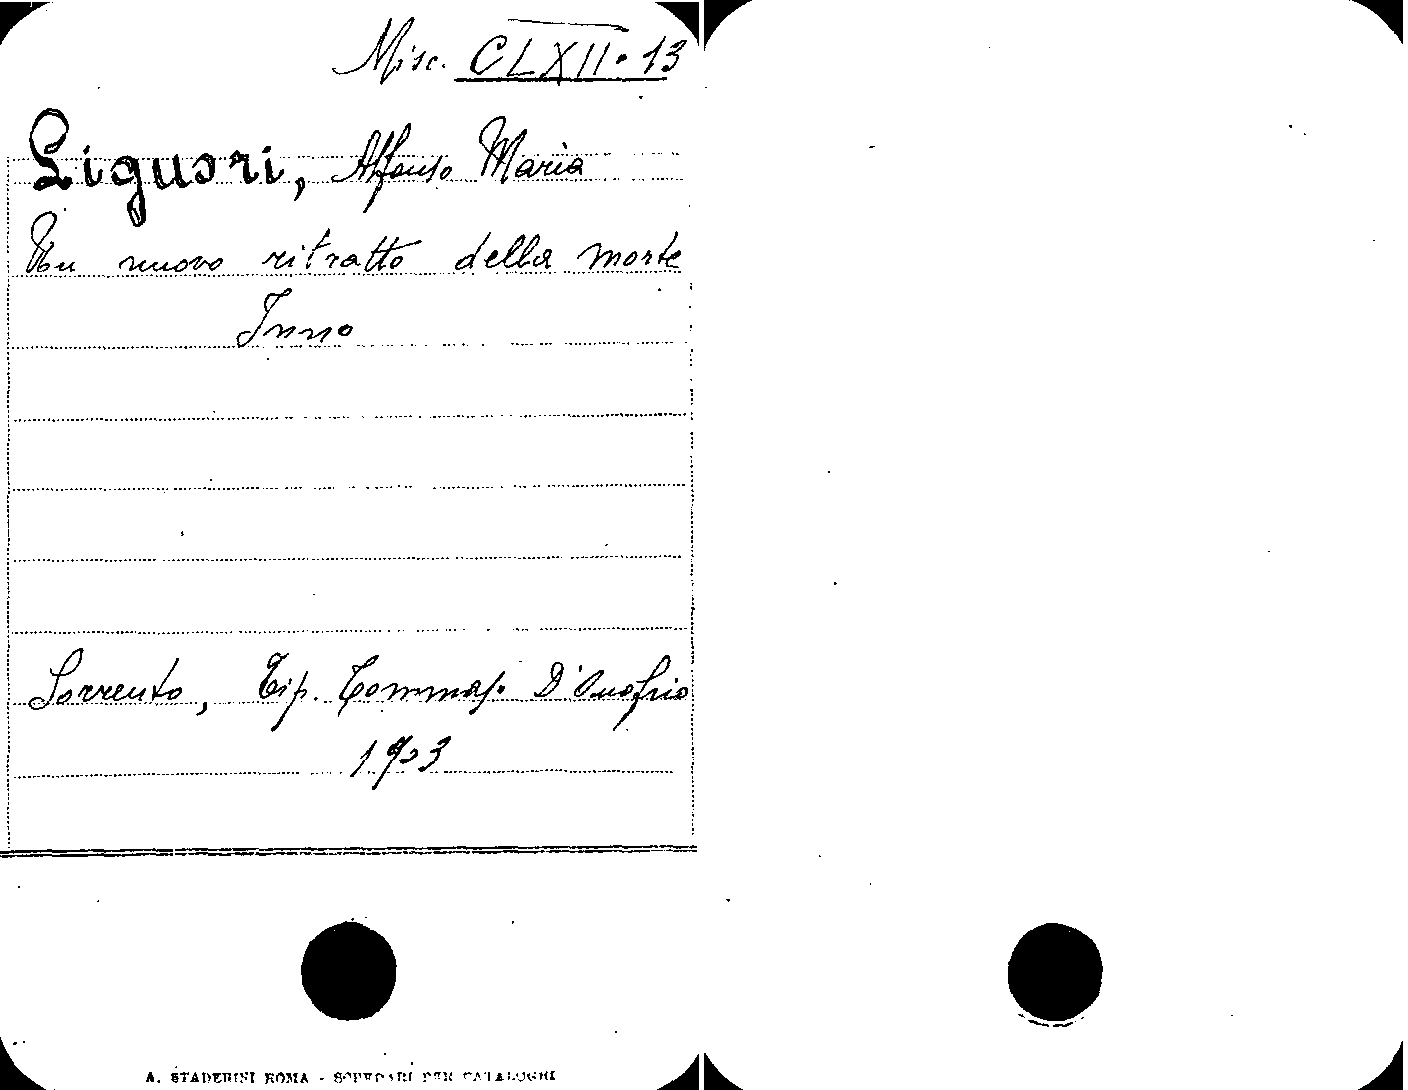 Misc. CLXII. 13
Liguori, Alfonso Maria
Un nuovo ritratto della morte
Inno
Sorrento, Tip. Tommaso D'Onofrio
1903
A. STADERINI ROMA - SCHEDARI PER CATALOGHI